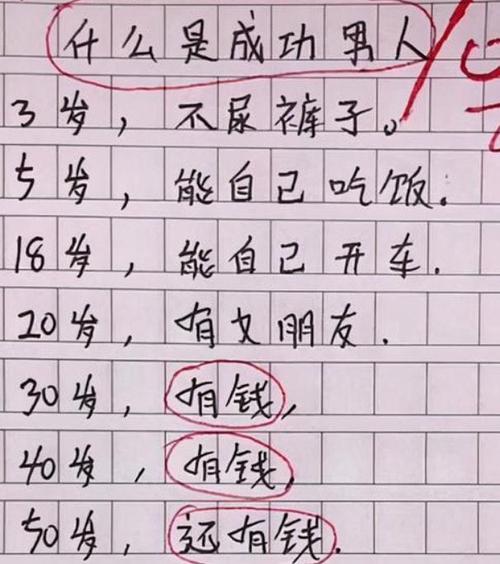 什么是成功男人
3岁，不尿裤子。
5岁，能自己吃饭.
18岁，能自己开车.
20岁，有女朋友.
30岁，有钱，
40岁，有钱，
50岁，还有钱.